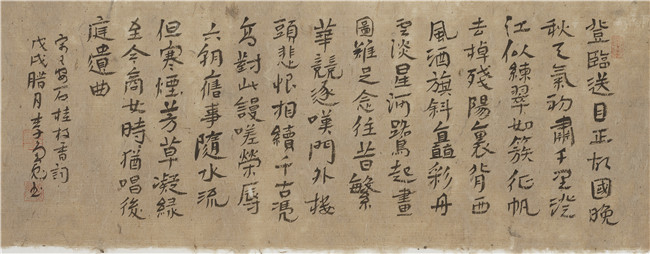 登臨送目正故國晚
秋天氣初肅千里澄
江似練翠如簇征帆
去掉殘陽裏背西
風酒旗斜矗彩舟
雲淡星河鷺起畫
圖難足念往昔繁
華競逐嘆門外樓
頭悲恨相續千古凴
高對此謾嗟榮辱
六朝舊事隨水流
但寒煙芳草凝緑
至今商女時猶唱後
庭遺曲
宋王安石桂枝香詞
戊戌腊月李